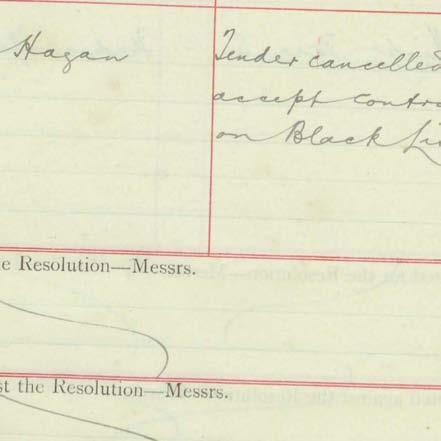 Hagan
Tender cancelled
accept contr
on Black Li
e Resolution—Messrs.
st the Resolution—Messrs.